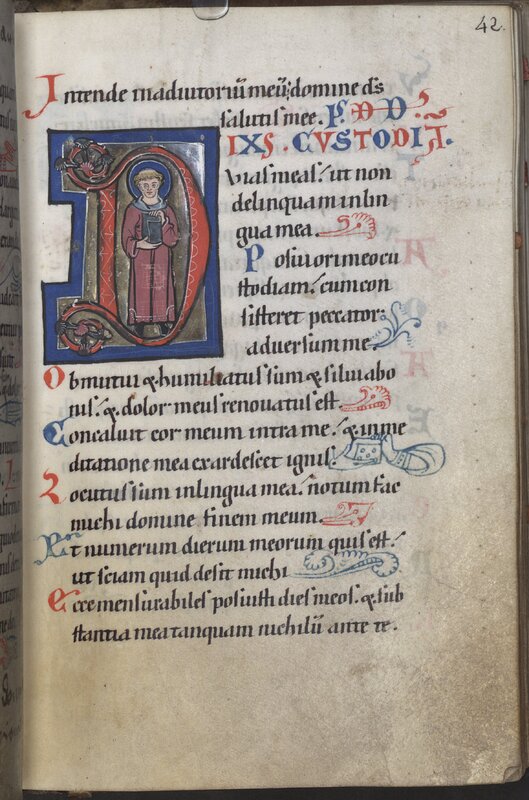 42.
Intende in adiutoriū meū; domine ds̄
salutis mee. P. D D.
IXI. CUSTODIĀ.
vias meas. ut non
delinquam in lin
gua mea.
Posui ori meo cu
stodiam. cum con
sisteret peccator
adversum me.
Obmutui & humiliatus sum & silui a bo
nis. & dolor meus renovatus est.
Concaluit cor meum intra me. & in me
ditatione mea exardescet ignis.
Locutus sum in lingua mea. notum fac
michi domine finem meum.
Et numerum dierum meorum quis est.
ut sciam quid desit michi
Ecce mensurabiles posuisti dies meos. & sub
stantia mea tanquam nichilū ante te.